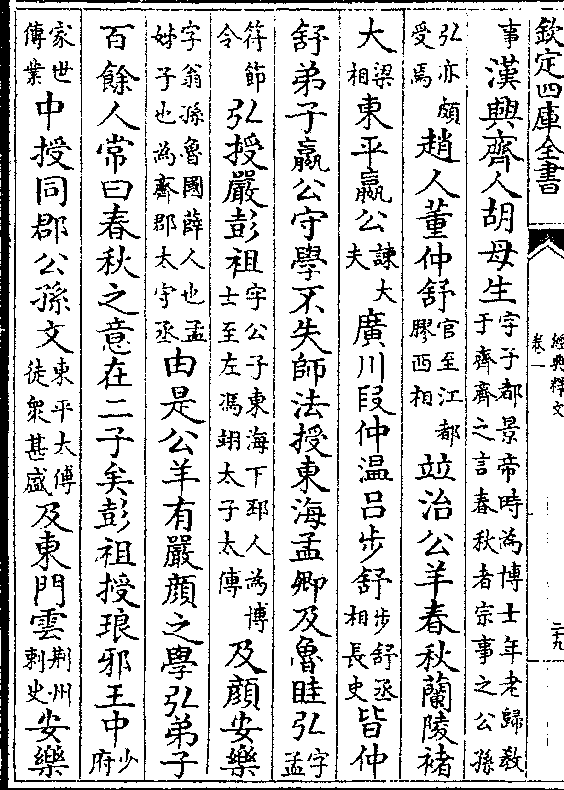 欽定四庫全書
經典釋文
卷一
二十九
事漢興齊人胡母生字子都景帝時為博士年老歸教于齊齊之言春秋者宗事之公孫
弘亦頗受焉趙人董仲舒官至江都膠西相竝治公羊春秋蘭陵褚
大梁相東平嬴公諫大夫廣川段仲溫呂步舒步舒丞相長史皆仲
舒弟子嬴公守學不失師法授東海孟卿及魯眭弘字孟
符節令弘授嚴彭祖字公子東海下邳人為博士至左馮翊太子太傅及顏安樂
字翁孫魯國薛人也孟姊子也為齊郡太守丞由是公羊有嚴顏之學弘弟子
百餘人常曰春秋之意在二子矣彭祖授琅邪王中少府
家世傳業中授同郡公孫文東平太傅徒衆甚盛及東門雲荆州刺史安樂